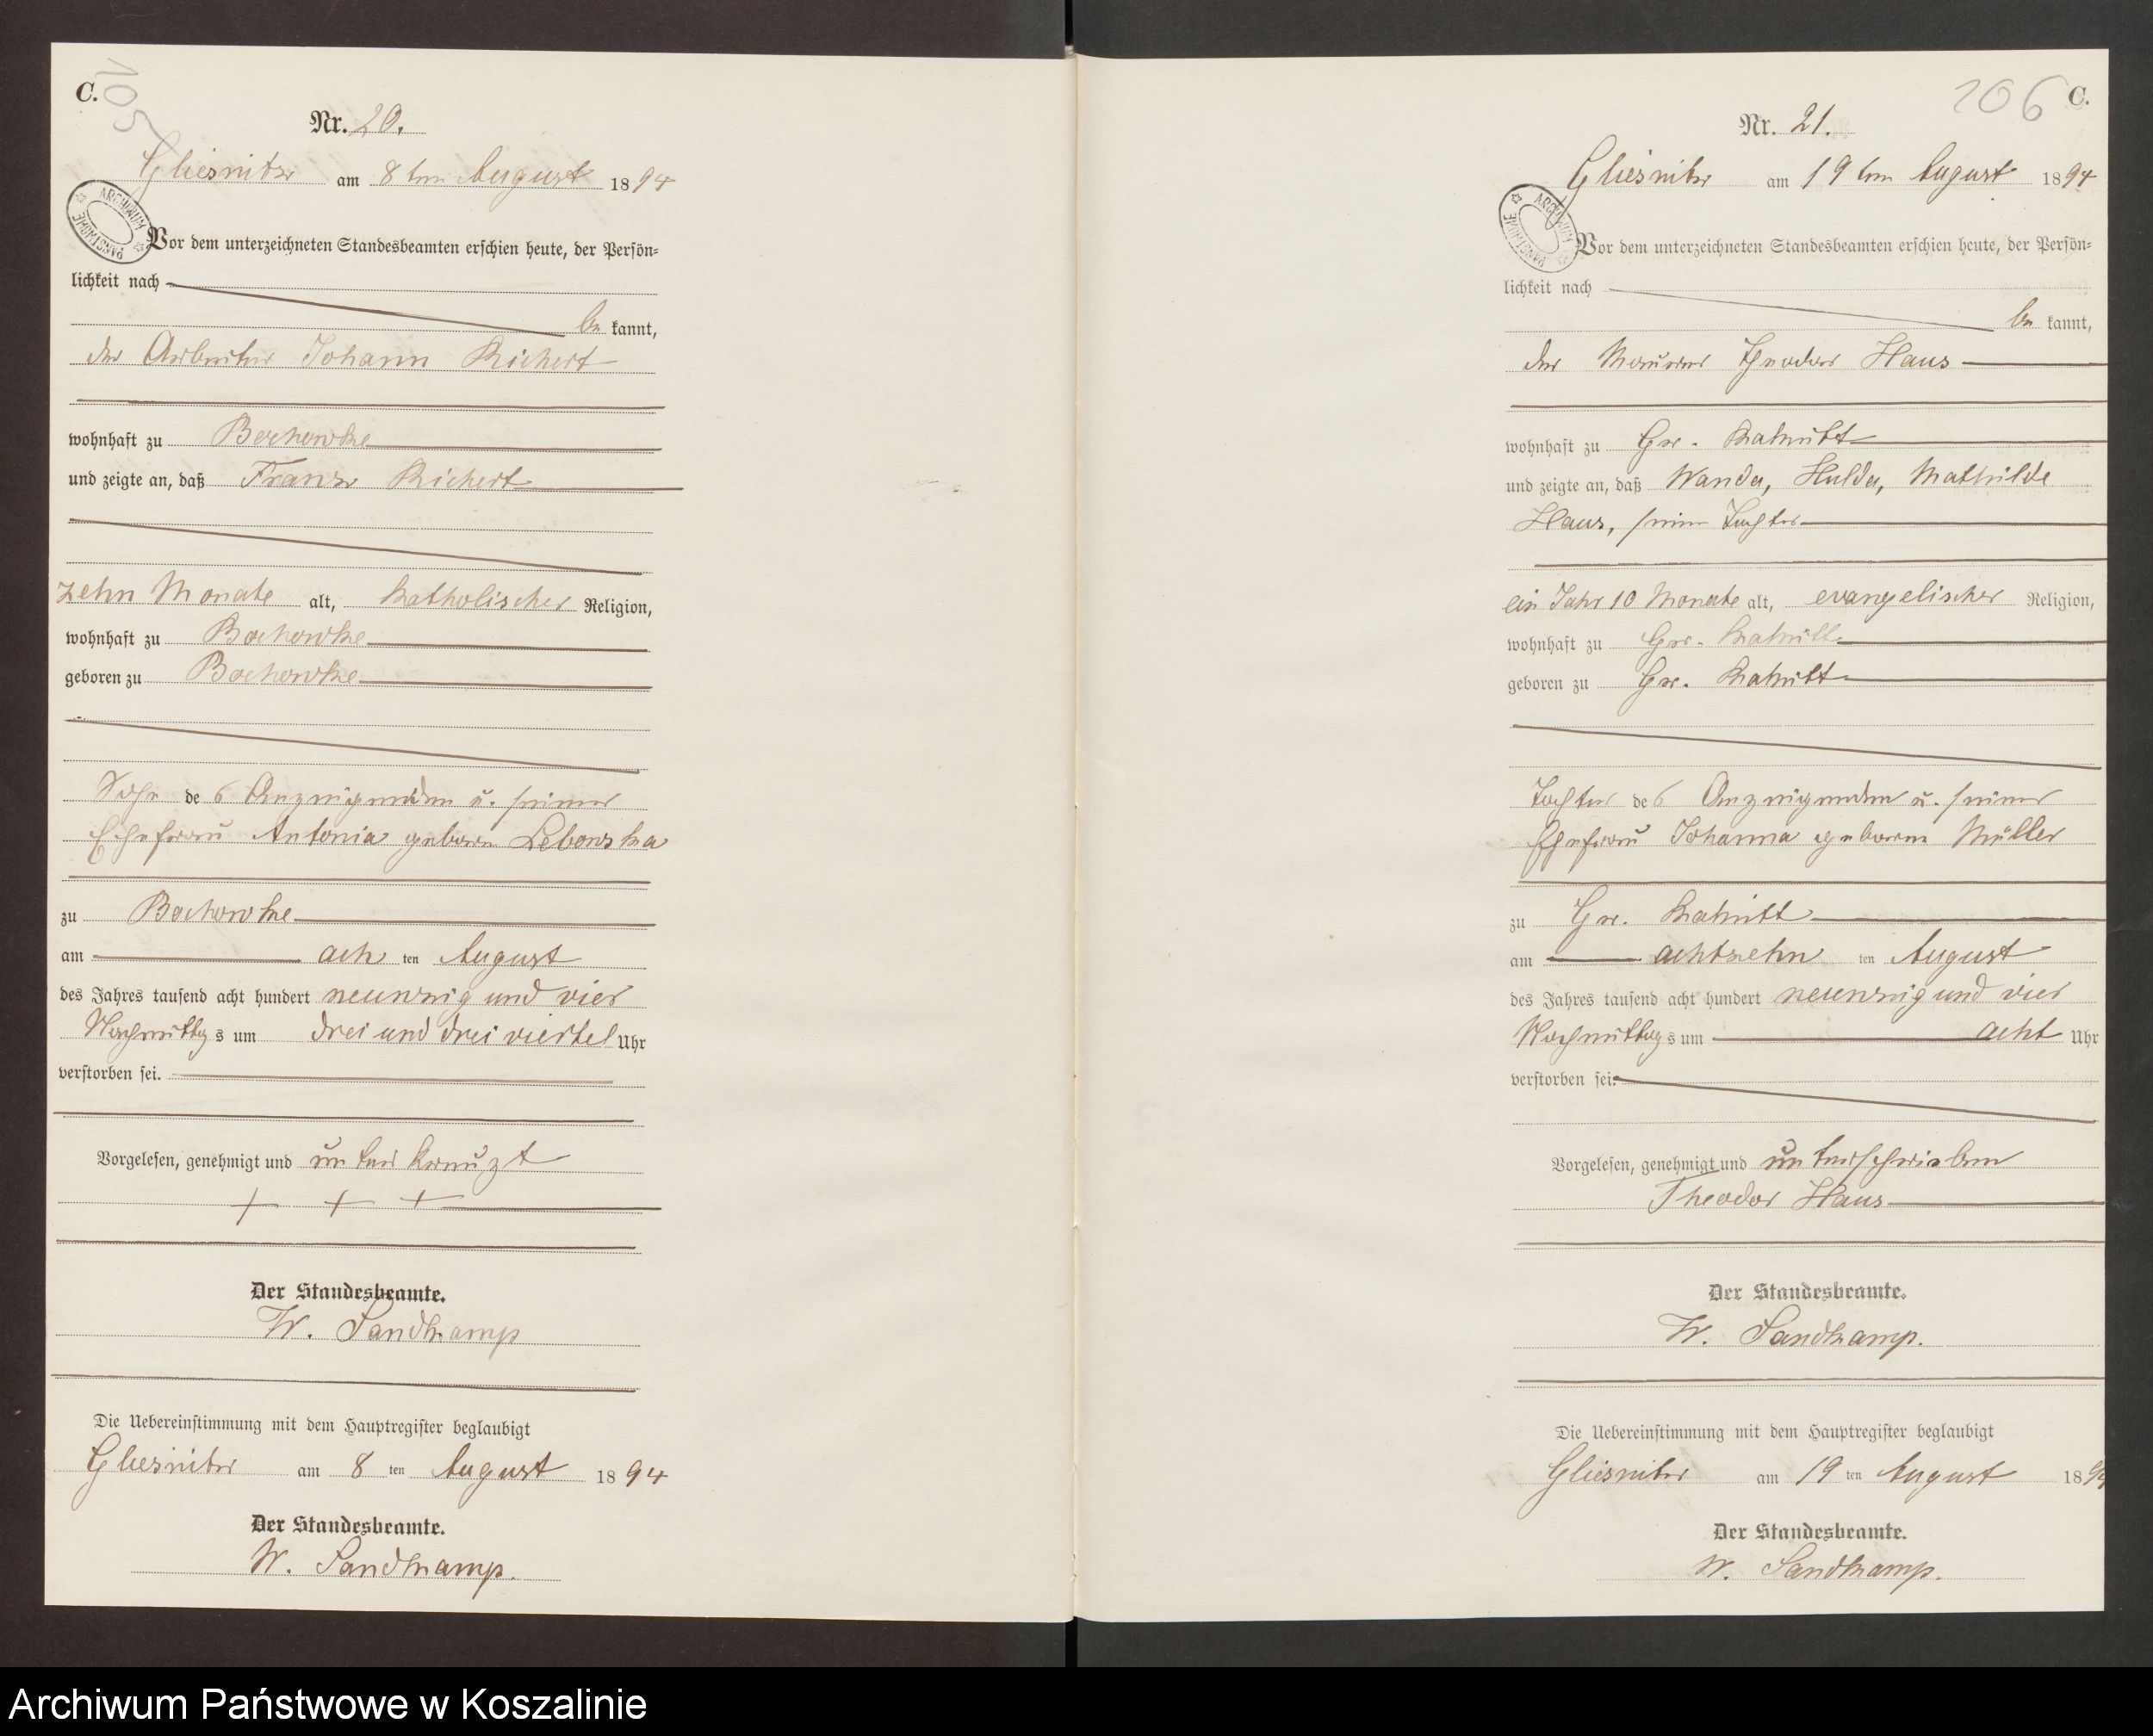 C.
105
Nr. 20.
Gliesnitz am 8ten August 1894
Vor dem unterzeichneten Standesbeamten erschien heute, der Persön-
lichkeit nach
be kannt,
der Arbeiter Johann Richert
wohnhaft zu Bochowke
und zeigte an, daß Franz Richert
zehn Monate alt, katholischer Religion,
wohnhaft zu Bochowke
geboren zu Bochowke
Sohn des Anzeigenden u. seiner
Ehefrau Antonia geboren Lebonska
zu Bochowke
am ach ten August
des Jahres tausend acht hundert neunzig und vier
Nachmittags um drei und drei viertel Uhr
verstorben sei.
Vorgelesen, genehmigt und unterkreuzt
+ + +
Der Standesbeamte.
W. Sandkamp
Die Uebereinstimmung mit dem Hauptregister beglaubigt
Gliesnitz am 8 ten August 1894
Der Standesbeamte.
W. Sandkamp.
106
C.
Nr. 21.
Gliesnitz am 19ten August 1894
Vor dem unterzeichneten Standesbeamten erschien heute, der Persön-
lichkeit nach
be kannt,
der Maurer Theodor Haus
wohnhaft zu Gr.
und zeigte an, daß Wanda, Hulda, Mathilde
Haus, seine Tochter
ein Jahr 10 Monate alt, evangelischer Religion,
wohnhaft zu Gr.
geboren zu Gr.
Tochter des Anzeigenden u. seiner
Ehefrau Johanna geboren Müller
zu Gr.
am achtzehn ten August
des Jahres tausend acht hundert neunzig und vier
Nachmittags um acht Uhr
verstorben sei.
Vorgelesen, genehmigt und unterschrieben
Theodor Haus
Der Standesbeamte.
W. Sandkamp.
Die Uebereinstimmung mit dem Hauptregister beglaubigt
Gliesnitz am 19 ten August 1894
Der Standesbeamte.
W. Sandkamp.
ARCHIWUM PAŃSTWOWE
ARCHIWUM PAŃSTWOWE
Archiwum Państwowe w Koszalinie